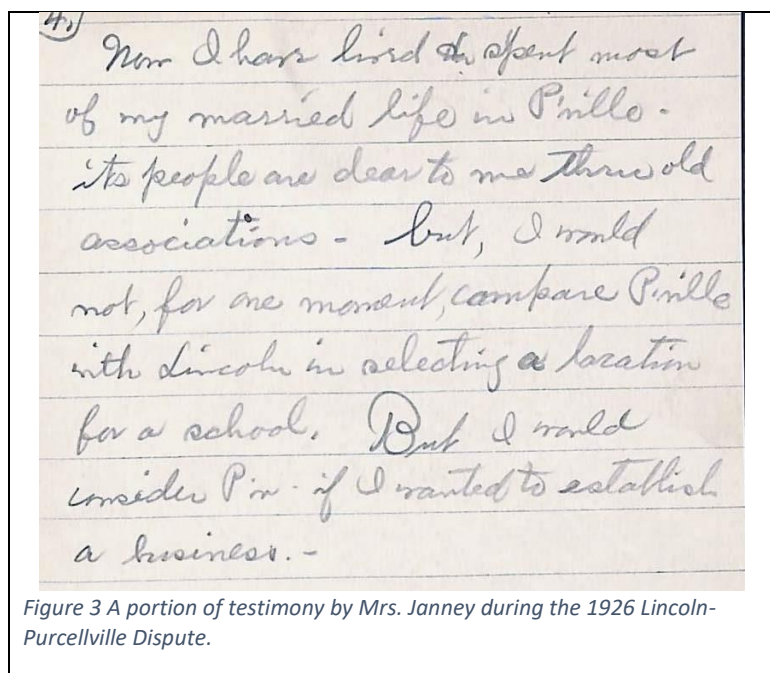 4.)
Now I have lived & spent most
of my married life in P'ville.
its people are dear to me thru old
associations - but, I would
not, for one moment, compare P'ville
with Lincoln in selecting a location
for a school. But I would
consider P'v. if I wanted to establish
a business. -
Figure 3 A portion of testimony by Mrs. Janney during the 1926 Lincoln-
Purcellville Dispute.